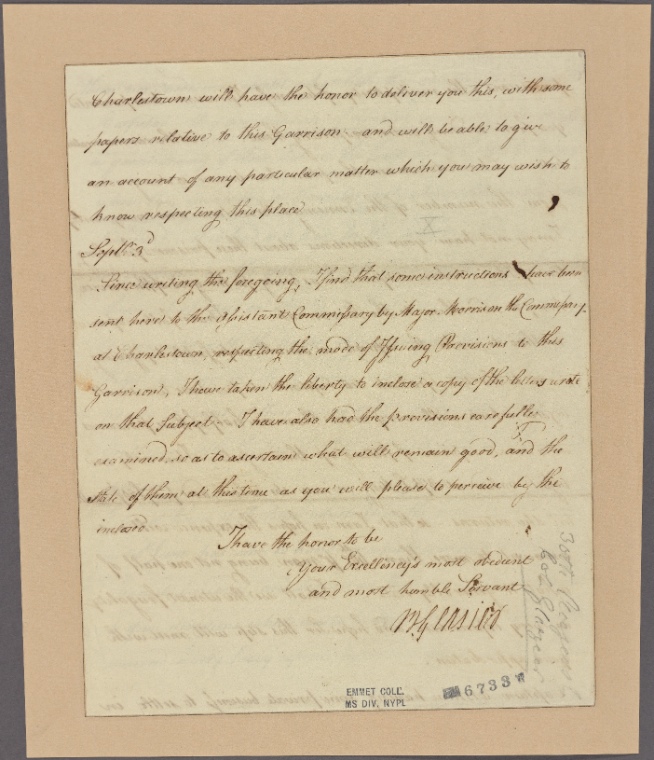 Charlestown will have the honor to deliver you this, with some
papers relative to this Garrison and will be able to give
an account of any particular matter which you may wish to
know respecting this place
Septr. 3d
Since writing the foregoing, I find that some instructions have been
sent here to the Assistant Commissary by Major Morrison the Commissary
at Charlestown, respecting the mode of Issuing Provisions to this
Garrison, I have taken the liberty to inclose a copy of the letters wrote
on that Subject I have also had the provisions carefully
examined, so as to ascertain what will remain good, and the
state of them at this time as you will please to perceive by the
inclosed.
I have the honor to be
Your Excellency's most obedient
and most humble Servant
B Glasier
EMMET COLL.
MS DIV, NYPL
6733
Col. Glazier